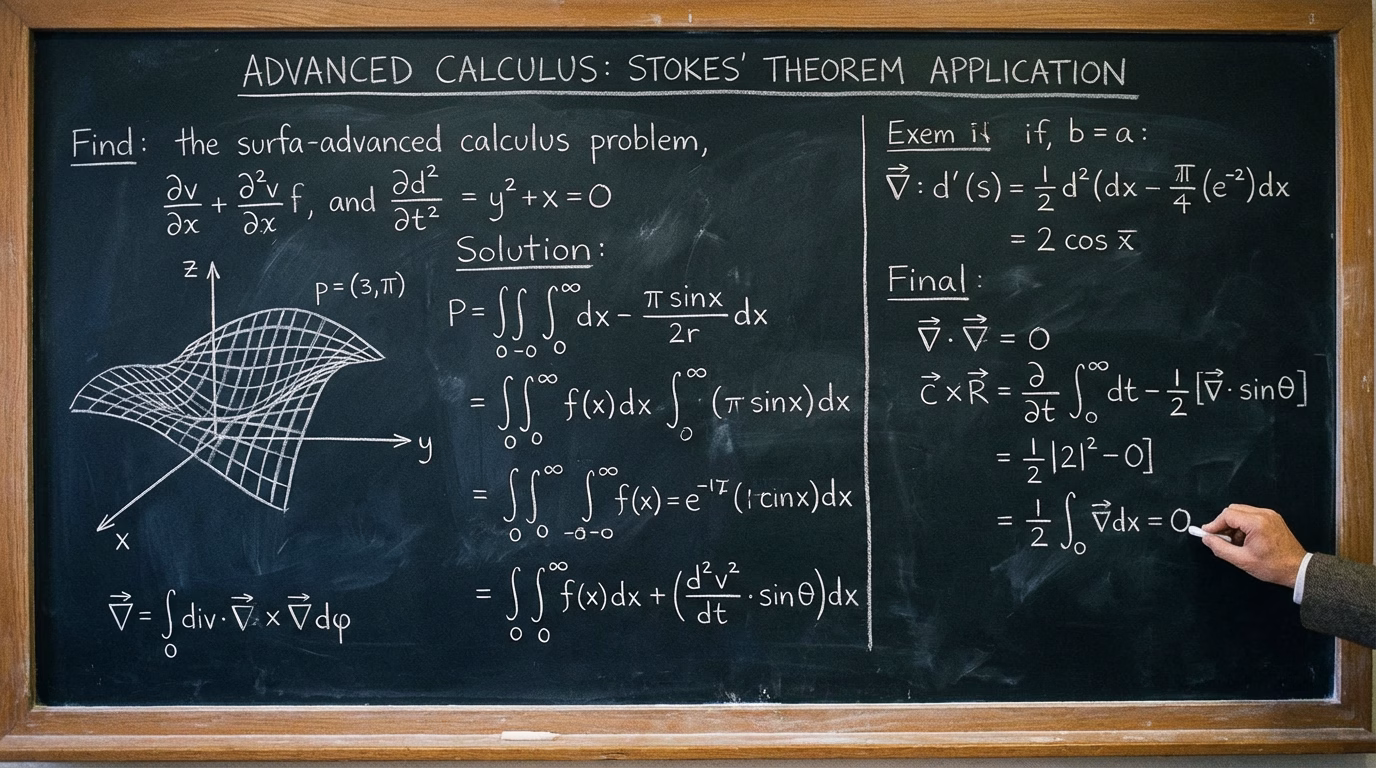 ADVANCED CALCULUS: STOKES' THEOREM APPLICATION
Find: the surfa-advanced calculus problem,
∂v/∂x + ∂²v/∂x f, and ∂d²/∂t² = y²+x=0
z
p=(3,π)
y
x
∇⃗ = ∫₀ div·∇⃗ × ∇⃗dφ
Solution:
P = ∫∫₀₋₀ ∫₀^∞ dx − (π sinx)/(2r) dx
= ∫₀∫₀^∞ f(x)dx ∫₀^∞ (π sinx)dx
= ∫₀∫₀^∞ ∫₋₀₋₀^∞ f(x)=e (x)dx
= ∫₀∫₀^∞ f(x)dx + (d²v²/dt · sinθ)dx
Exem if, b=a:
∇⃗: d'(s) = 1/2 d²(dx − π/4 (e⁻²)dx
= 2 cos x̄
Final:
∇⃗·∇⃗ = 0
c⃗×R⃗ = ∂/∂t ∫₀^∞ dt − 1/2 [∇⃗·sinθ]
= 1/2 |2|²−0]
= 1/2 ∫₀ ∇⃗dx = 0